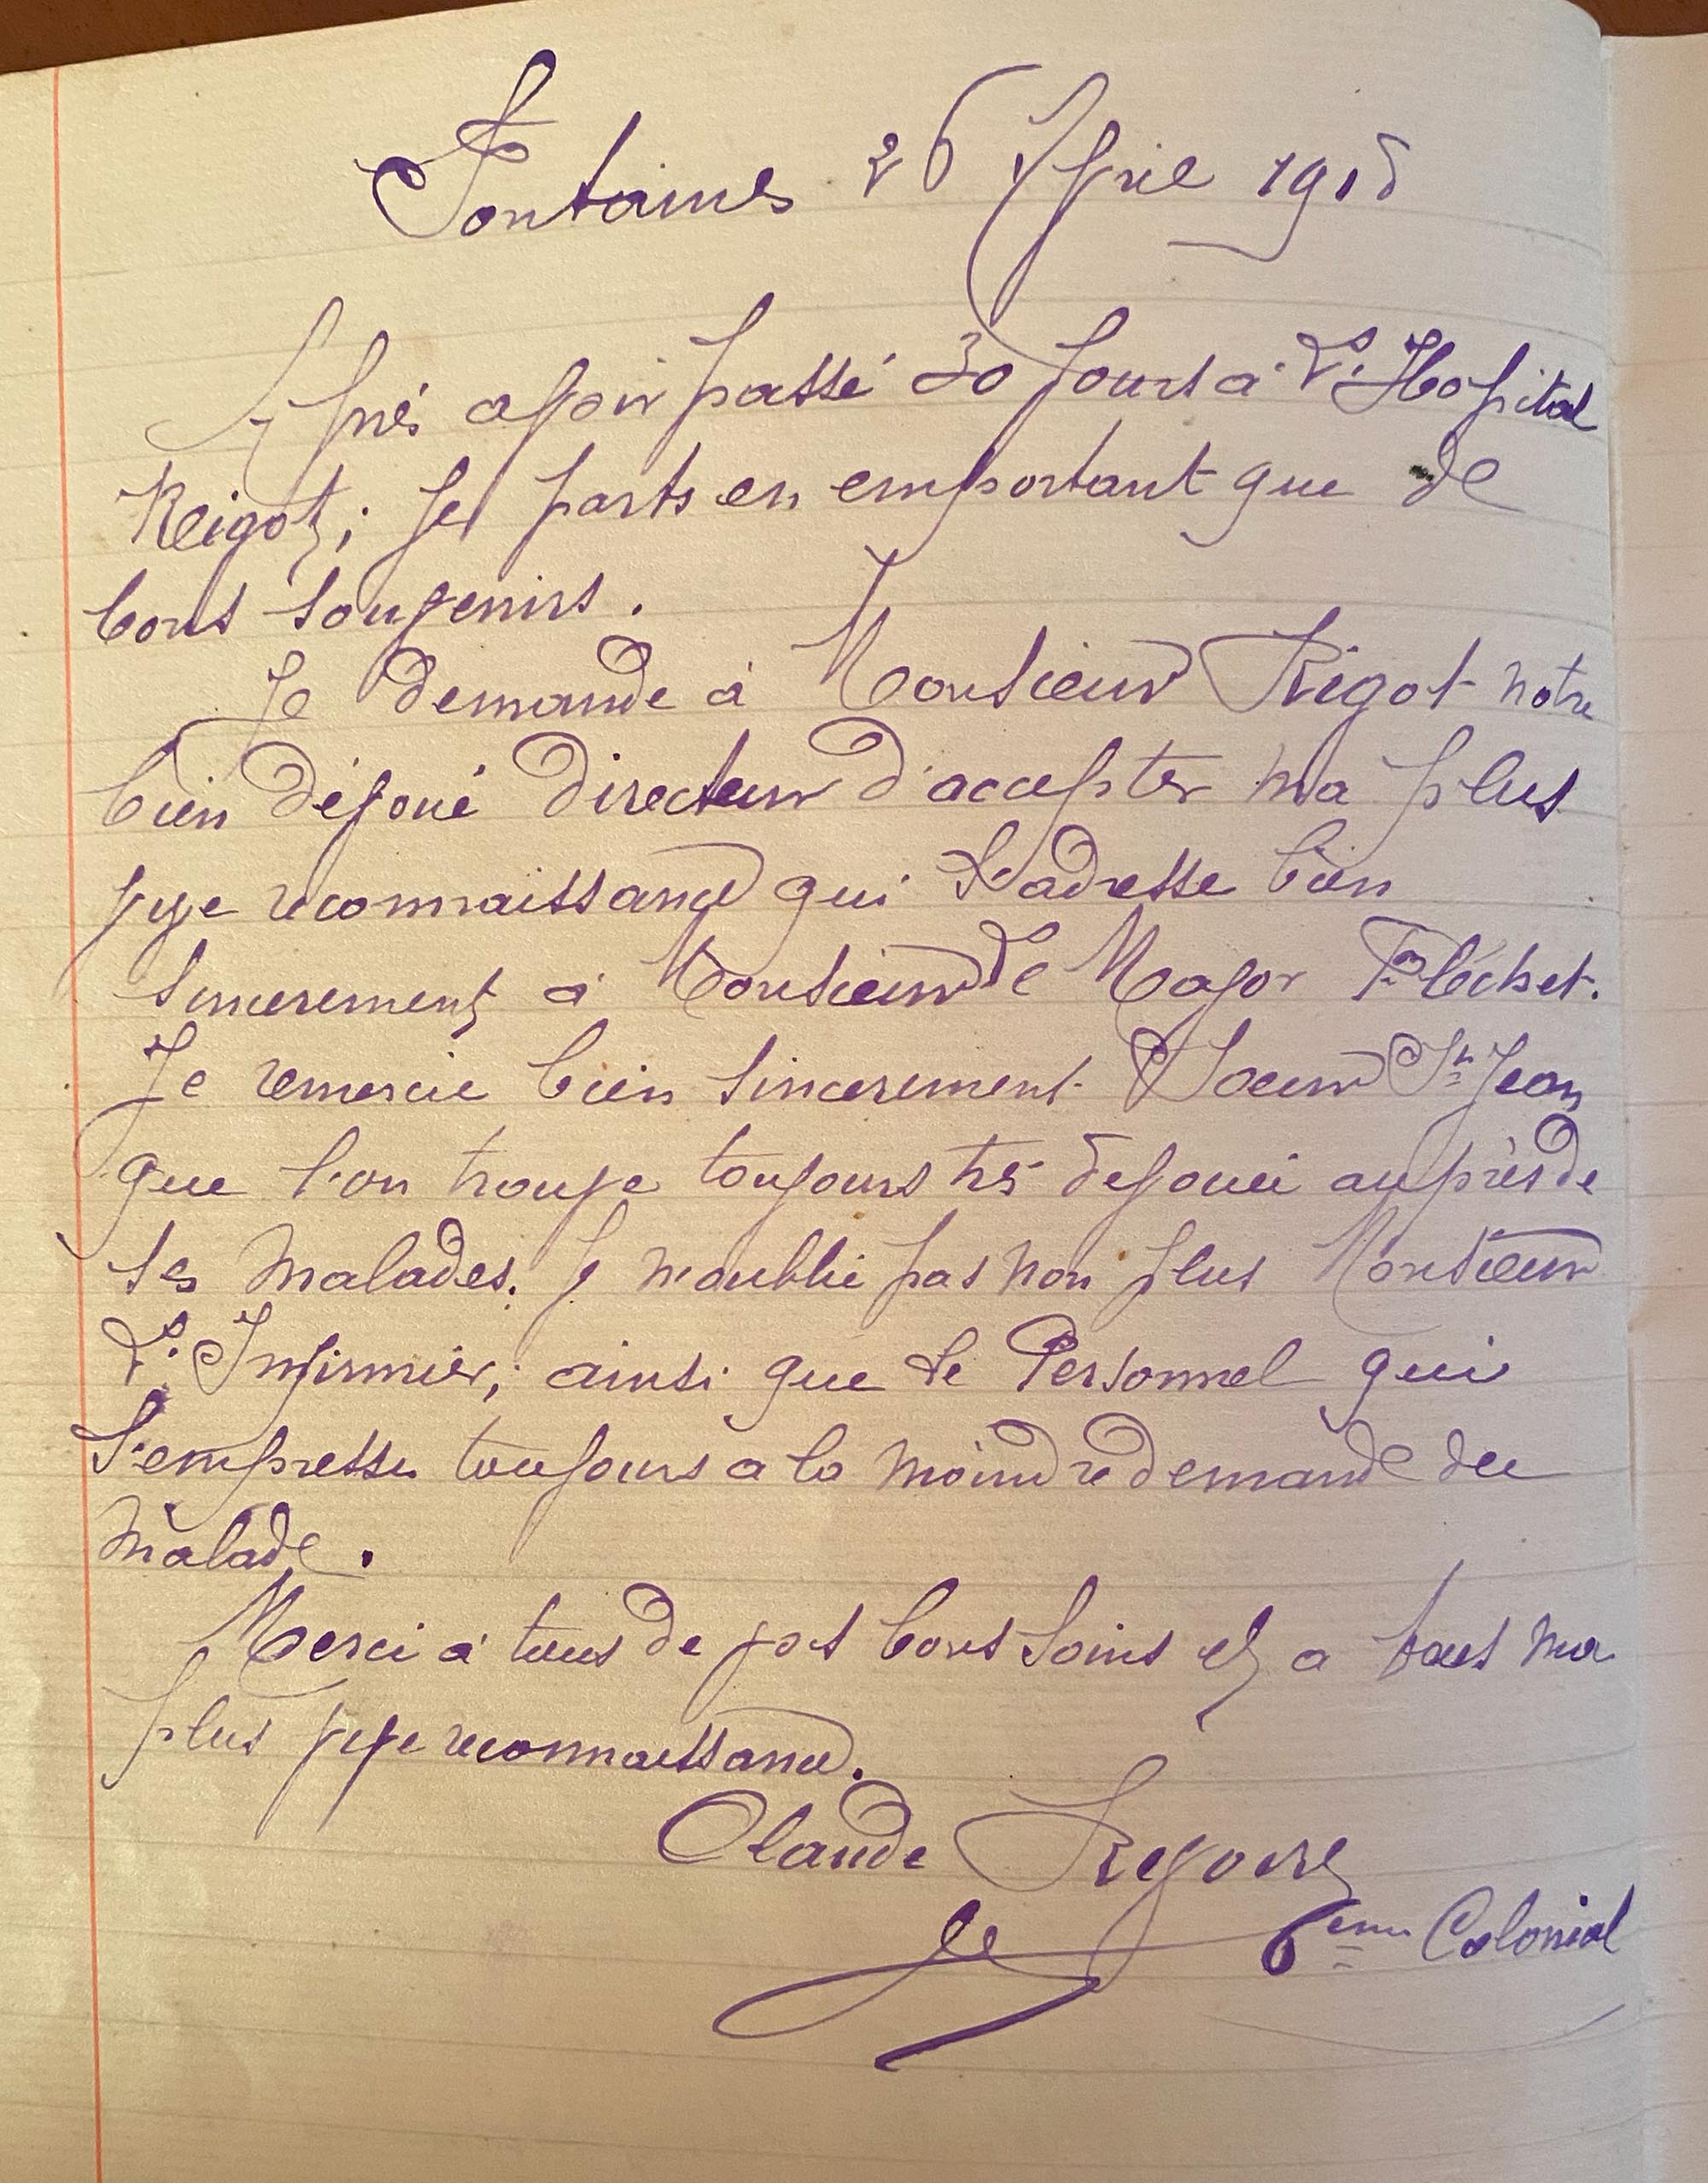 Fontaines 26 Avril 1915
Après avoir passé 30 jours à L'Hopital
Reigot; je parts en emportant que de
bons souvenirs.
Je demande à Monsieur Rigot notre
bien dévoué directeur d'accepter ma plus
vive reconnaissance qui s'adresse bien
sincerement à Monsieur Le Major Fléchet.
Je remercie bien sincerement Soeur St Jean
que l'on trouve toujours trés dévouéé auprès de
ses malades. Je n'oublie pas non plus Monsieur
L'Infirmier; ainsi que le Personnel qui
s'empresse toujours a la moindre demande du
malade.
Merci à tous de vos bons soins et a tous ma
plus vive reconnaissance.
Claude
6eme Colonial